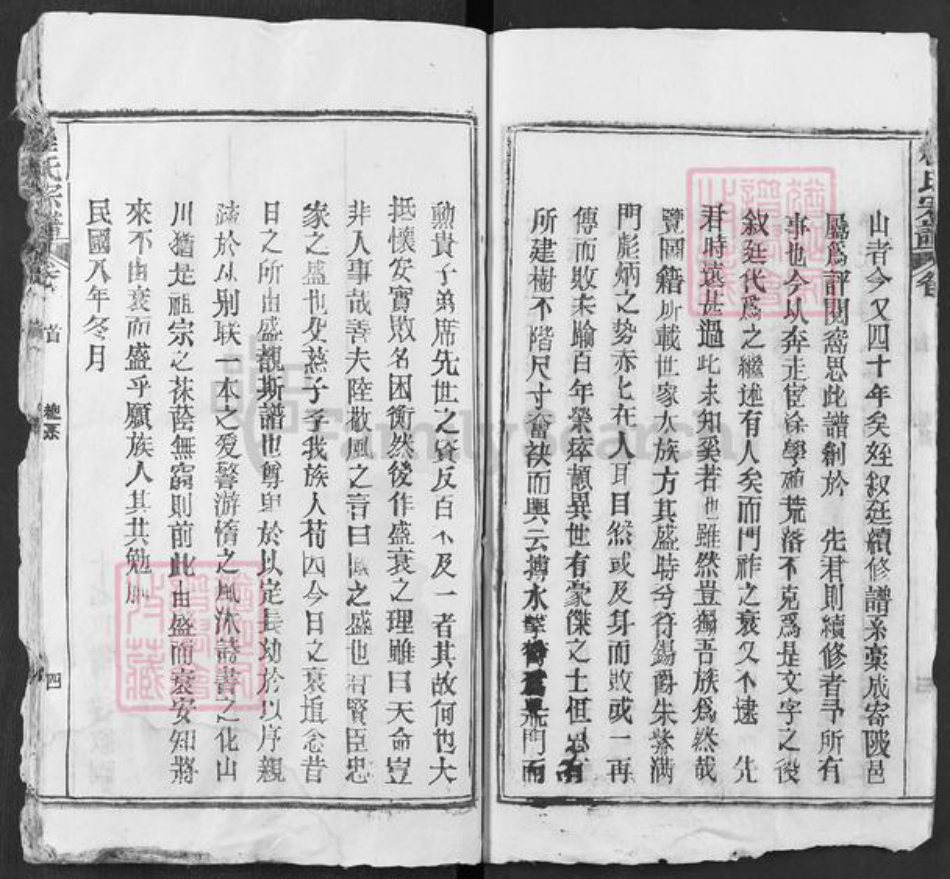 山者今又四十年矣姪叙廷續修譜系稾成寄陂邑
屬爲評閱窩思此譜創於 先君則續修者予所有
事也今以奔走宦途學殖荒落不克爲是文字之役
叙廷代爲之繼述有人矣而門祚之衰又不逮 先
君時遠甚過此未知奚若也雖然豈獨吾族爲然哉
覽國籍所載世家大族方其盛時分符錫爵朱紫滿
門彪炳之勢亦七在人耳目然或及身而敗或一再
傳而敗未踰百年榮瘁頓異世有豪傑之士但
所建樹不階尺寸奮袂而興云搏水擊
門而
勳貴子弟席先世之資反百不及一者其故何也大
抵懷安實敗名困衡然後作盛衰之理雖曰天命豈
非人事哉善夫陸敬風之言曰國之盛也君賢臣忠
家之盛也父慈子孝我族人苟因今日之衰追念昔
日之所由盛覩斯譜也尊卑於以定長幼於以序親
疎於以別联一本之爱警游惰之風沐詩書之化山
川猶是祖宗之菻蔭無窮則前此由盛而衰安知將
來不由衰而盛乎願族人其共勉
民國八年冬月
氏宗譜
卷
首
四
氏宗譜
卷
FamilySearch